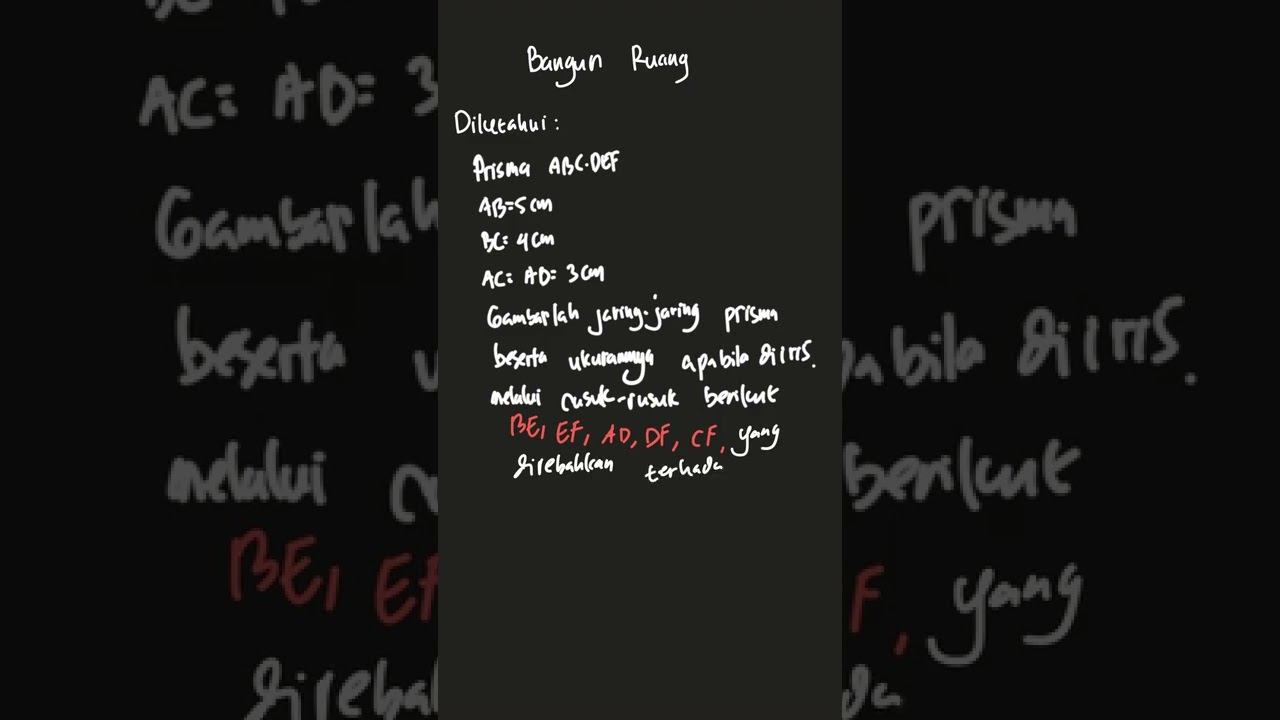 Bangun Ruang
Diketahui :
Prisma ABC.DEF
AB=5cm
BC= 4cm
AC= AD= 3cm
Gambarlah jaring-jaring prisma
beserta ukurannya apabila diiris.
melalui rusuk-rusuk berikut
BE, EF, AD, DF, CF, yang
direbahkan terhada